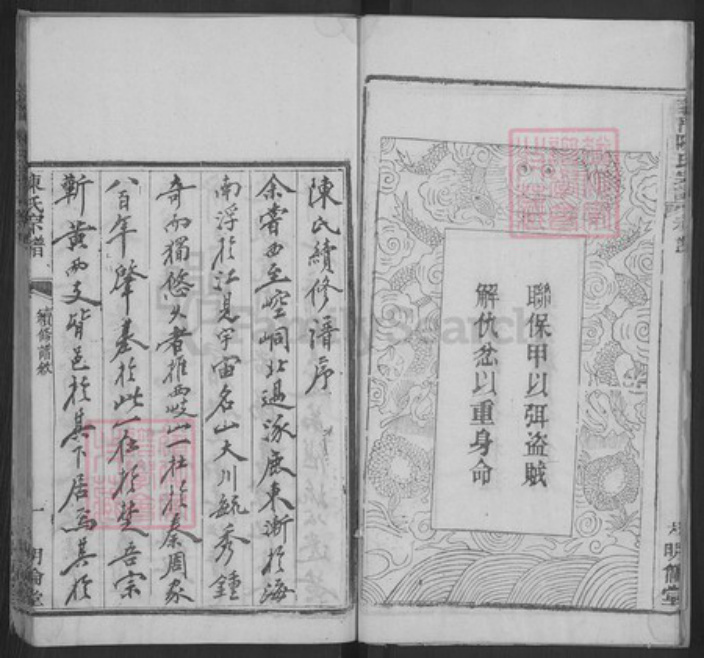 聯保甲以弭盜賊
解仇忿以重身命
明倫堂
陳氏續修譜序
余嘗西至崆峒北過涿鹿東漸於海
南浮於江見宇宙名山大川毓秀鍾
奇而獨悠久者推兩岐山一在於秦周家
八百年肇基於此一在於楚吾宗
蘄黃兩支皆邑於其下居焉其於
陳氏宗譜
續修譜敘
一
明倫堂
FamilySearch